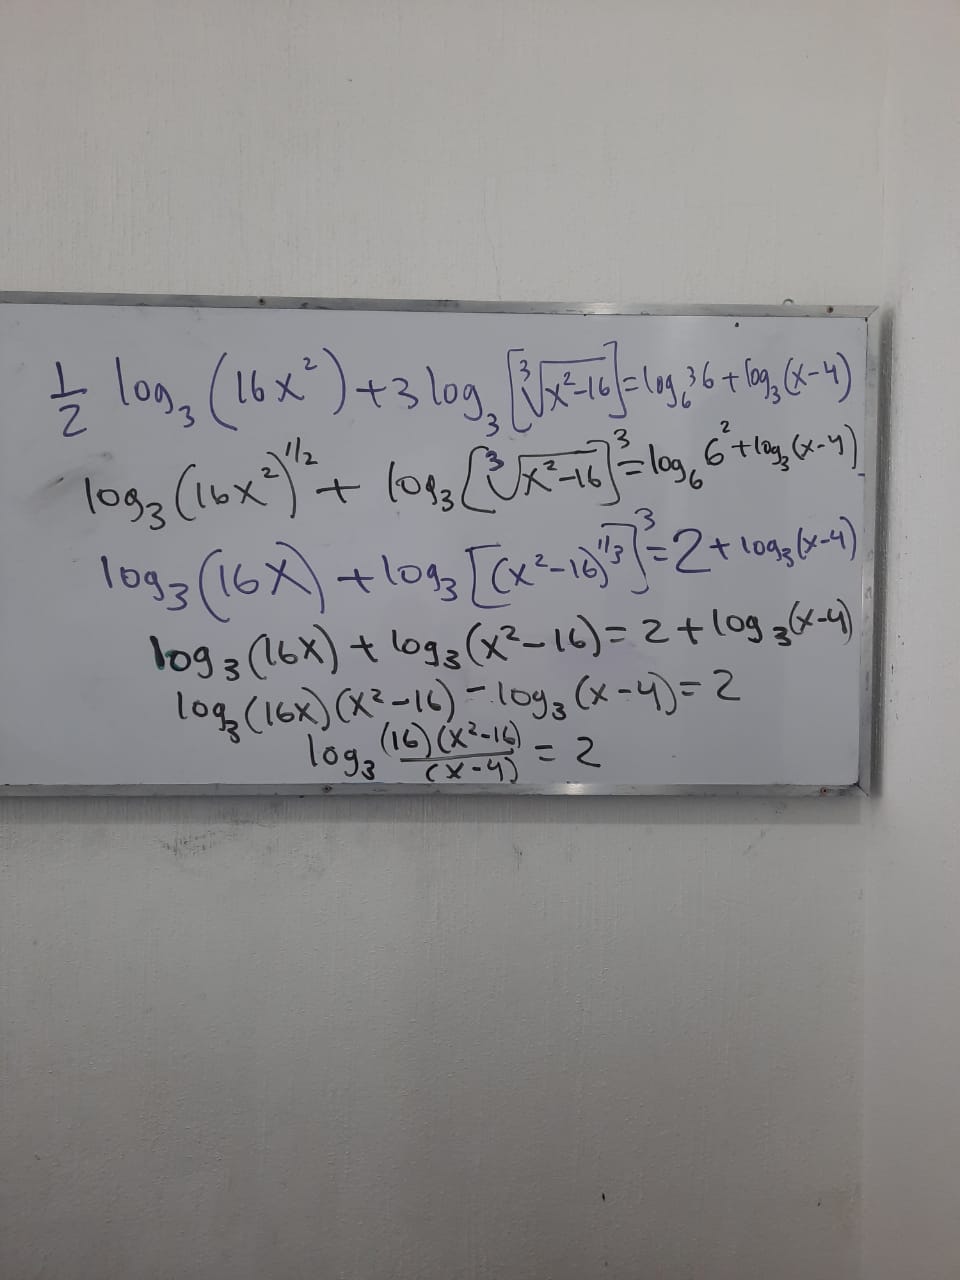 1/2 log₃(16x²)+3log₃[∛(x²-16)]=log₆36+log₃(x-4)
log₃(16x²)^(1/2)+log₃[∛(x²-16)]³=log₆6²+log₃(x-4)
log₃(16X)+log₃[(x²-16)^(1/3)]³=2+log₃(x-4)
log₃(16X)+log₃(x²-16)=2+log₃(x-4)
log₃(16X)(x²-16)-log₃(x-4)=2
log₃ (16)(x²-16)/(x-4)=2